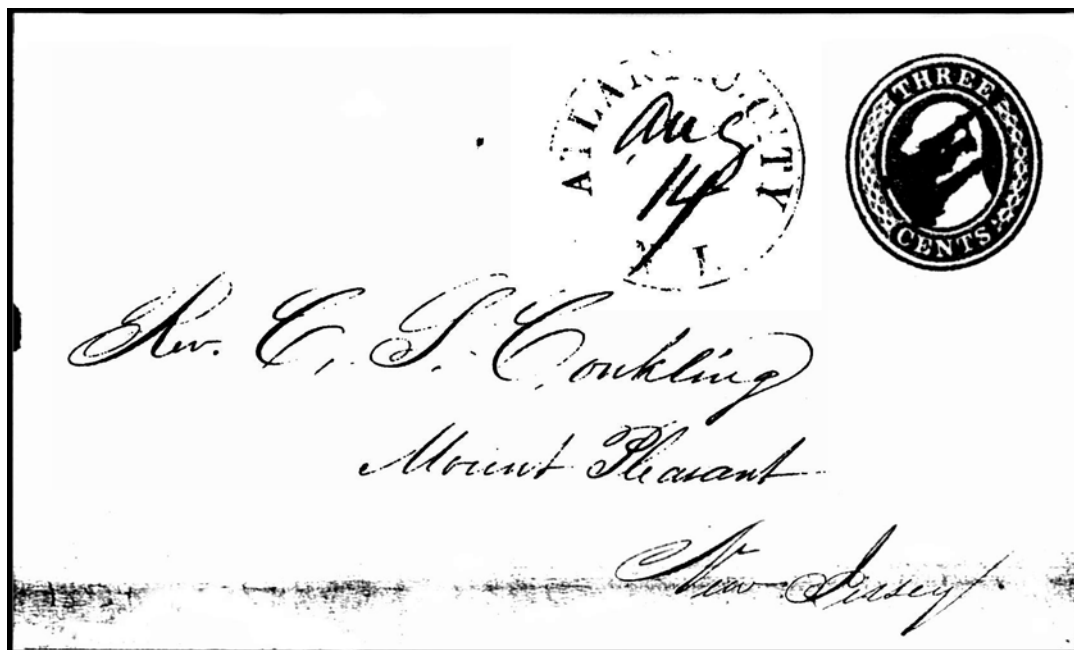 ATLANTIC CITY
Aug
14
N J
THREE
CENTS
Rev. C. S. Conkling
Mount Pleasant
New Jersey.